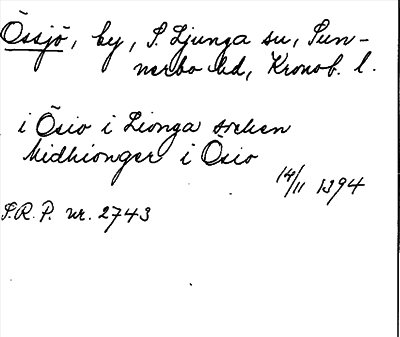 Össjö, by, S. Ljunga sn, Sun-
nerbo hd, Kronob. l.
i Ösio i Lionga sochen
Midhionger i Ösio
14/11 1394
S.R.P. nr. 2743